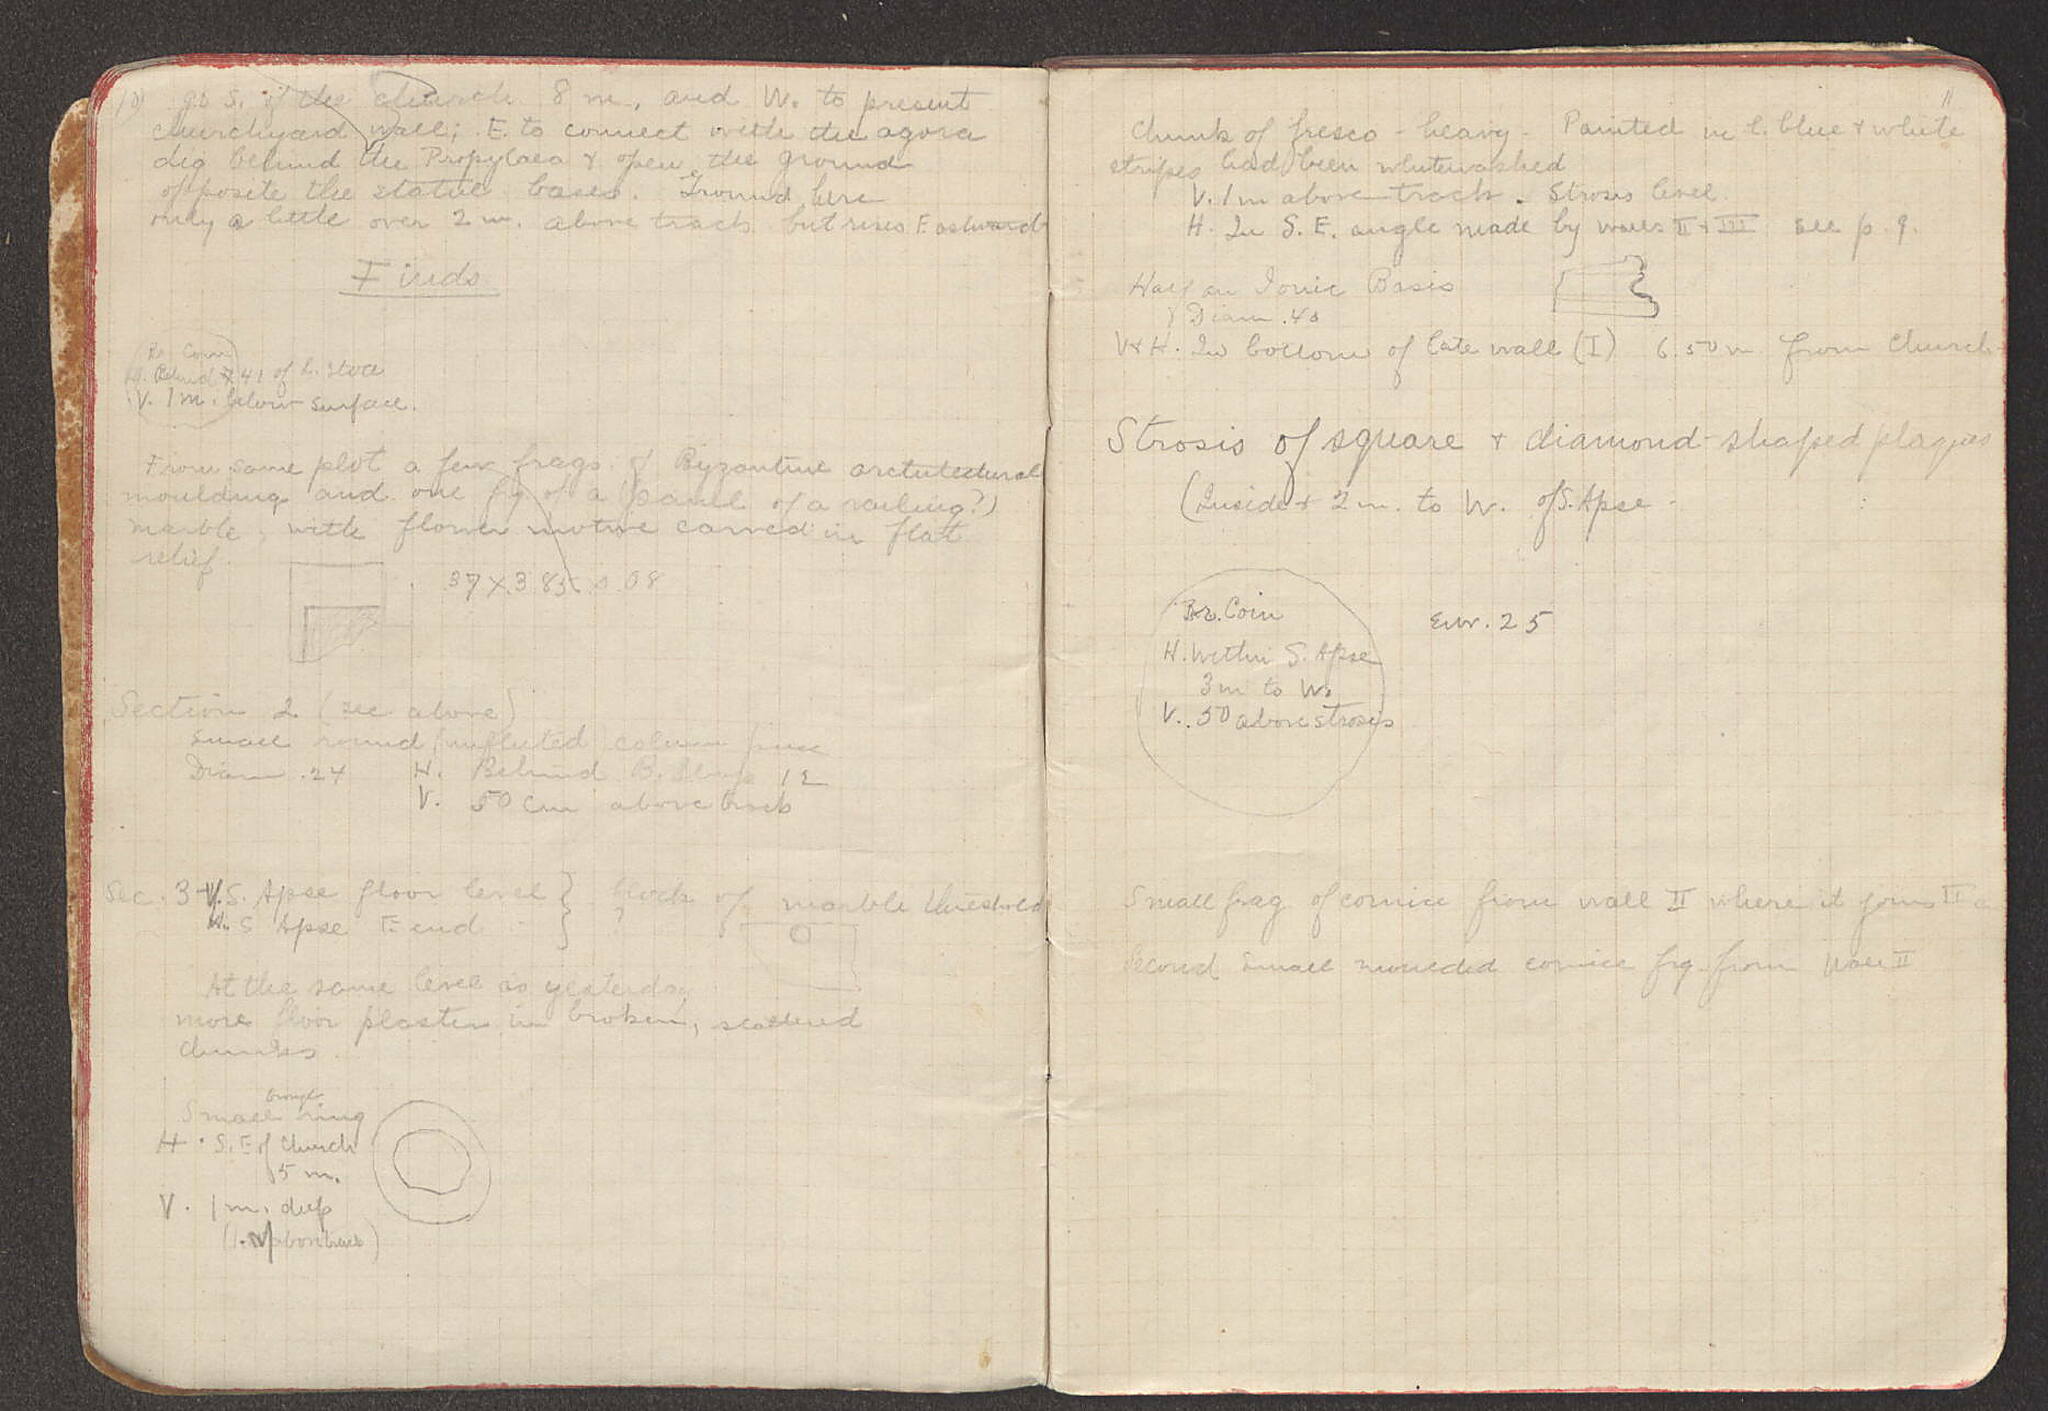 10) go S. of the church 8 m., and W. to present
churchyard wall; E. to connect with the agora
dig behind the Propylaea & open the ground
opposite the statue bases. Ground here
only a little over 2 m. above track but rises Eastward
Finds
Br. Coin
H. Behind 41 of L. Stoa
V. 1 m. below surface.
From same plot a few frags. of Byzantine architectural
moulding and one fg. of a (panel of a railing?)
marble, with flower motive carved in flat
relief.
.37 X .385 x .08
Section 2 (see above)
Small round (unfluted) column piece
Diam .24 H. Behind B. 12
V. 50 cm above track
Sec. 3 V. S. Apse floor level } block of marble threshold
H. S Apse E end } ?
At the same level as yesterday
more floor plaster in broken, scattered
chunks.
bronze
Small ring
H. S. E of Church
15 m.
V. 1 m. deep
(1. above track)
11
Chunk of fresco - heavy - Painted in l. blue & white
stripes had been whitewashed
V. 1 m above track. Strosis level.
H. In S. E. angle made by walls II & III see p. 9.
Half an Ionic Basis
Diam .40
V & H. In bottom of late wall (I) 6.50 m from church
Strosis of square & diamond-shaped plaques
(Inside & 2 m. to W. of S. Apse -
Br. Coin Env. 25
H. Within S. Apse
3 m to W.
V. .50 above strosis
Small frag of cornice from wall II where it joins
Second small moulded cornice frg. from Wall II